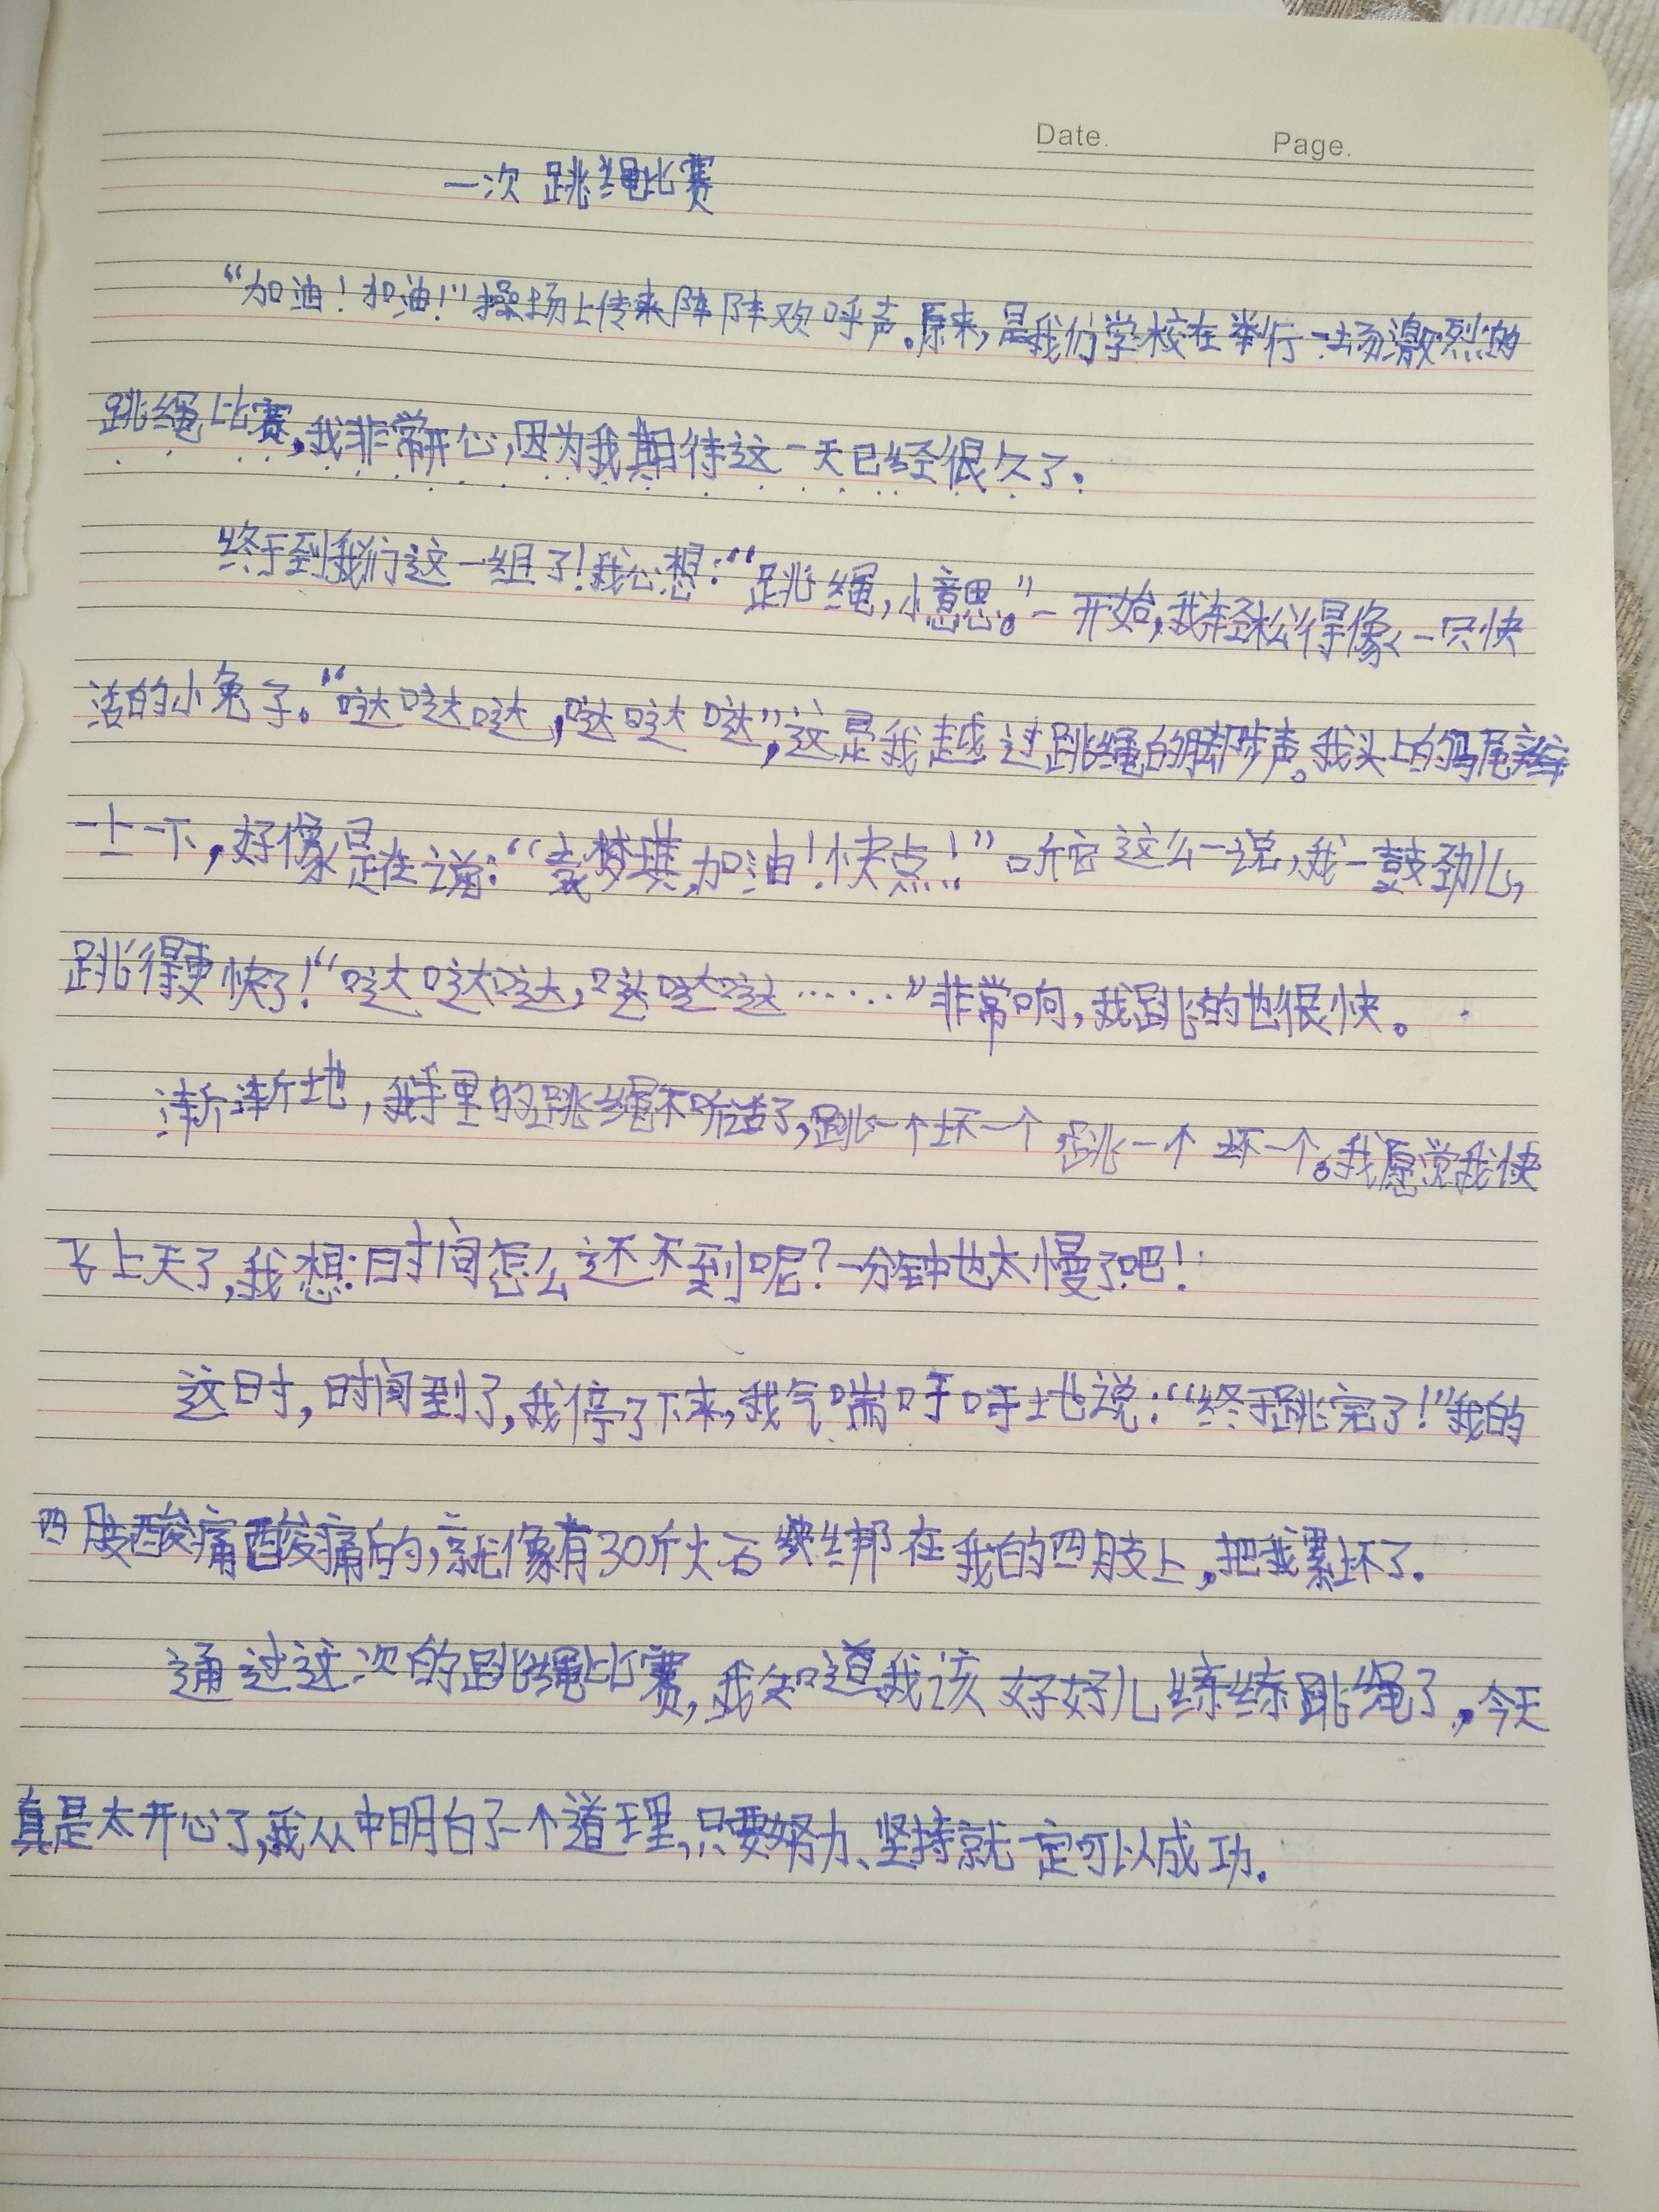 Date.
Page.
一次 跳绳比赛
“加油！加油！”操场上传来阵阵欢呼声。原来，是我们学校在举行一场激烈的
跳绳比赛，我非常开心，因为我期待这一天已经很久了。
终于到我们这一组了！我心想：“跳绳，小意思。”一开始，我轻松得像一只快
活的小兔子。“哒哒哒，哒哒哒”，这是我越过跳绳的脚步声。我头上的马尾辫
一上一下，好像是在说：“梦琪，加油！快点！”听它这么一说，我一鼓劲儿，
跳得更快了！“哒哒哒，哒哒哒……”非常响，我跳的也很快。
渐渐地，我手里的跳绳不听话了，跳一个坏一个，跳一个坏一个。我感觉我快
飞上天了，我想：时间怎么还不到呢？一分钟也太慢了吧！
这时，时间到了，我停了下来，我气喘呼呼地说：“终于跳完了！”我的
四肢酸痛酸痛的，就像有30斤大石块绑在我的四肢上，把我累坏了。
通过这次的跳绳比赛，我知道我该好好儿练练跳绳了，今天
真是太开心了，我从中明白了一个道理，只要努力、坚持就一定可以成功。